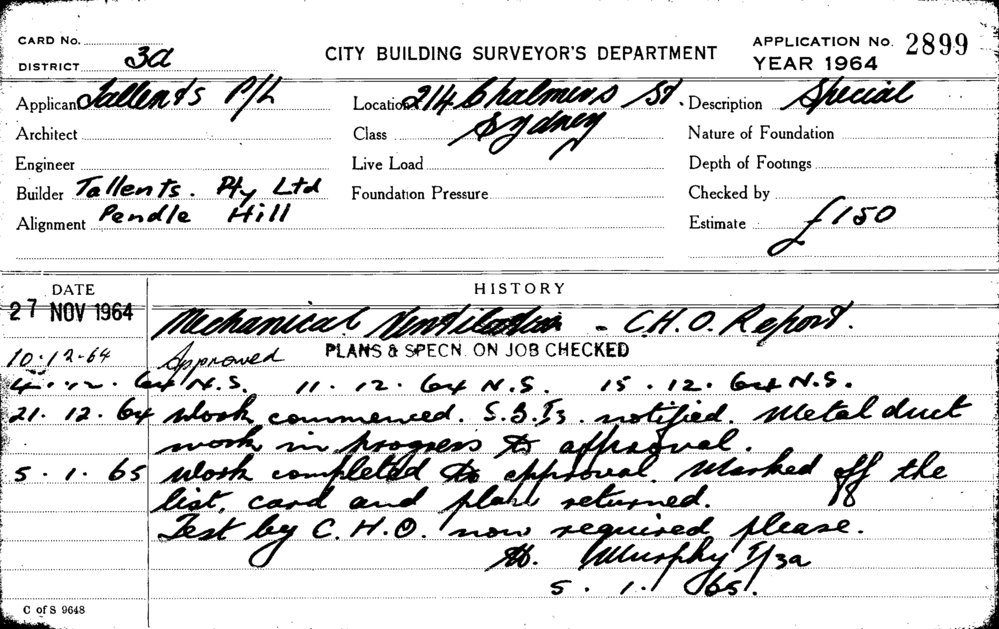 CARD No.
DISTRICT 3a
CITY BUILDING SURVEYOR'S DEPARTMENT
APPLICATION No. 2899
YEAR 1964
Applicant Tallents P/L
Location 214 Chalmers St.
Sydney
Description Special
Architect
Class
Nature of Foundation
Engineer
Live Load
Depth of Footings
Builder Tallents. Pty Ltd
Foundation Pressure
Checked by
Alignment Pendle Hill
Estimate £150
DATE HISTORY
27 NOV 1964 Mechanical Ventilation - C.H.O. Report.
10.12.64 Approved PLANS & SPECN. ON JOB CHECKED
4.12.64 N.S. 11.12.64 N.S. 15.12.64 N.S.
21.12.64 Work commenced. S.B.Is. notified. Metal duct
work in progress to approval.
5.1.65 Work completed to approval. Marked off the
list, card and plan returned.
Test by C.H.O. now required please.
Murphy I/3a
5.1.65.
C of S 9648